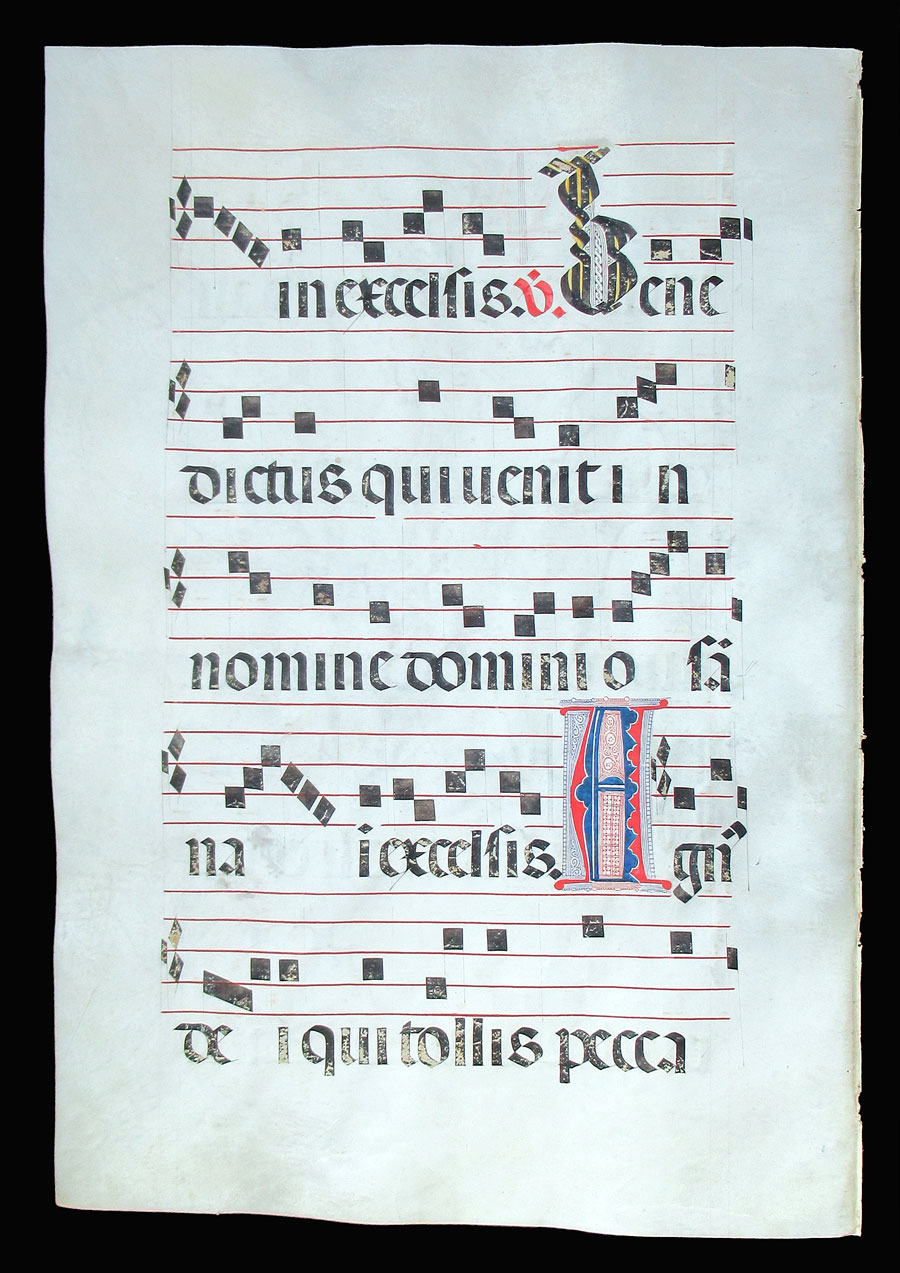 in excelsis. v̇. Bene
dictus qui uenit i n
nomine domini o sā
na i excelsis. A gn̄
de i qui tollis pecca